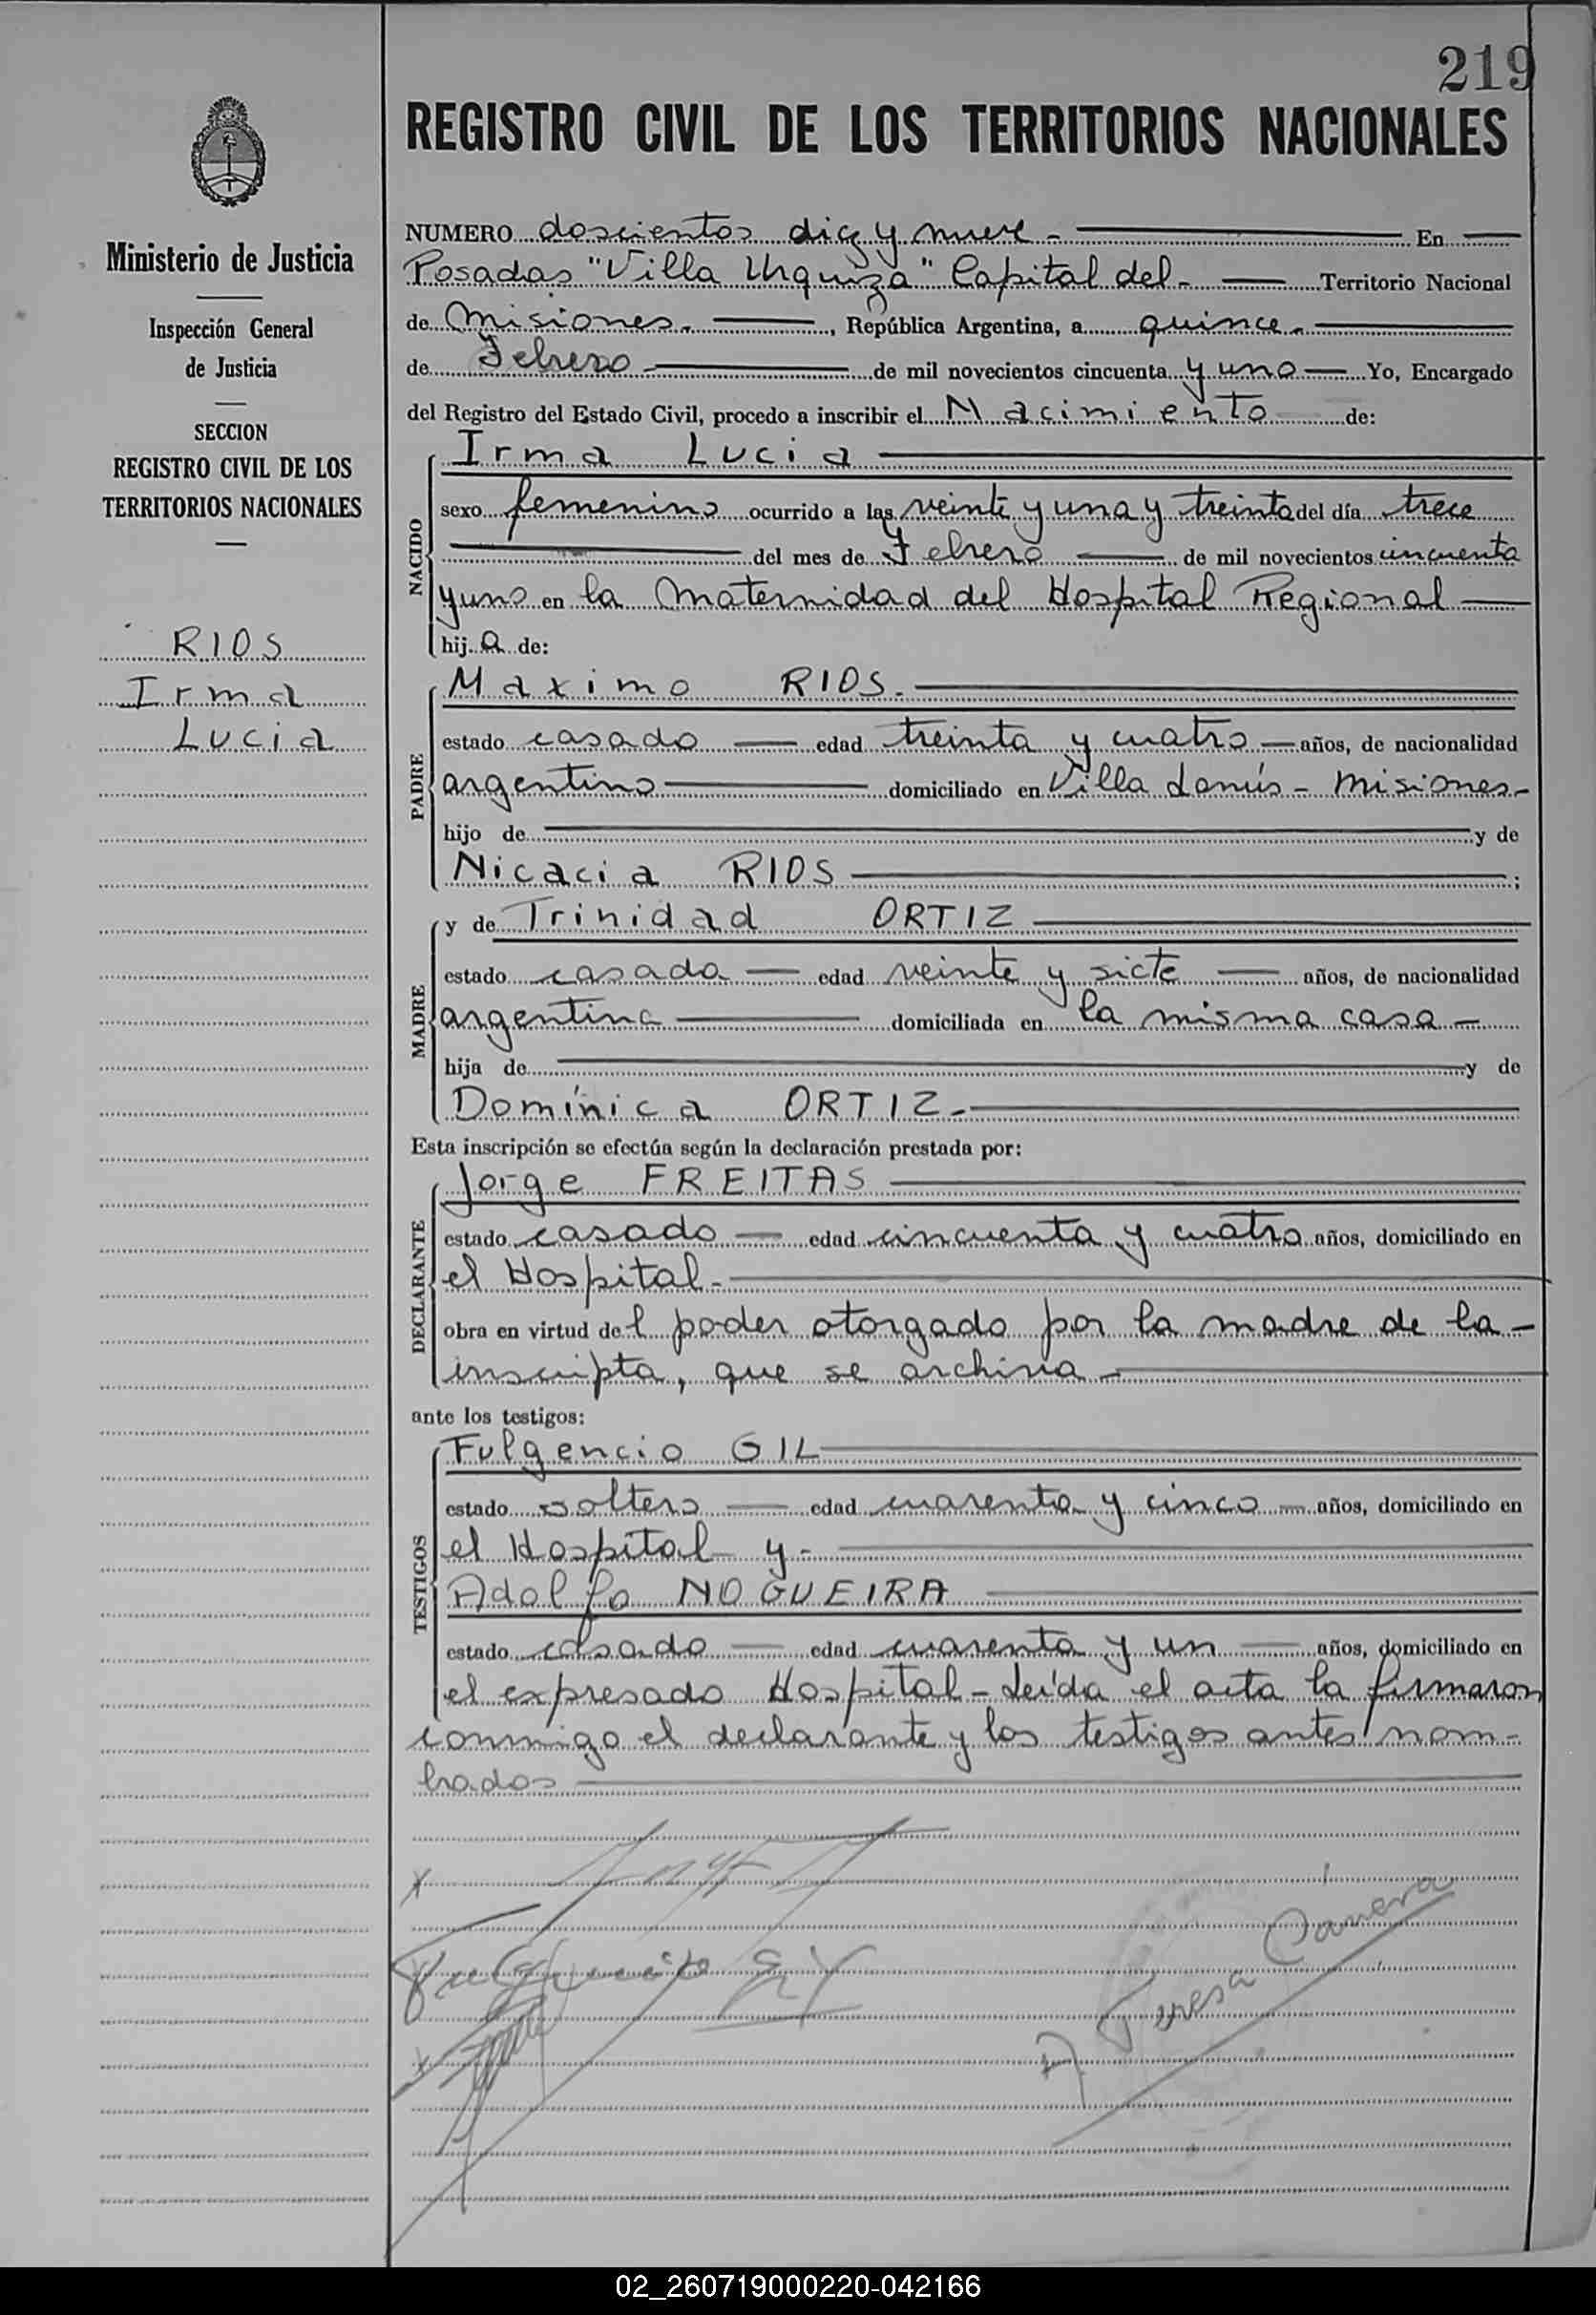 219
REGISTRO CIVIL DE LOS TERRITORIOS NACIONALES
Ministerio de Justicia
Inspección General
de Justicia
SECCION
REGISTRO CIVIL DE LOS
TERRITORIOS NACIONALES
RIOS
Irma
Lucia
NUMERO doscientos diez y nueve - En
Posadas "Villa Urquiza" Capital del - Territorio Nacional
de Misiones. , República Argentina, a quince -
de Febrero de mil novecientos cincuenta y uno Yo, Encargado
del Registro del Estado Civil, procedo a inscribir el Nacimiento de:
NACIDO
Irma Lucia
sexo femenino ocurrido a las veinte y una y treinta del día trece
del mes de Febrero de mil novecientos cincuenta
y uno en la Maternidad del Hospital Regional
hija de:
PADRE
Maximo RIOS.
estado casado edad treinta y cuatro años, de nacionalidad
argentino domiciliado en Villa Lanús - Misiones -
hijo de y de
Nicacia RIOS ;
MADRE
y de Trinidad ORTIZ
estado casada edad veinte y siete años, de nacionalidad
argentina domiciliada en la misma casa -
hija de y de
Domínica ORTIZ -
Esta inscripción se efectúa según la declaración prestada por:
DECLARANTE
Jorge FREITAS
estado casado edad cincuenta y cuatro años, domiciliado en
el Hospital -
obra en virtud del poder otorgado por la madre de la -
inscripta, que se archiva -
ante los testigos:
TESTIGOS
Fulgencio GIL
estado soltero edad cuarenta y cinco años, domiciliado en
el Hospital y -
Adolfo NOGUEIRA
estado casado edad cuarenta y un años, domiciliado en
el expresado Hospital - Leída el acta la firmaron
conmigo el declarante y los testigos antes nom-
brados
Fulgencio Gil
A Teresa Cámera
02_260719000220-042166